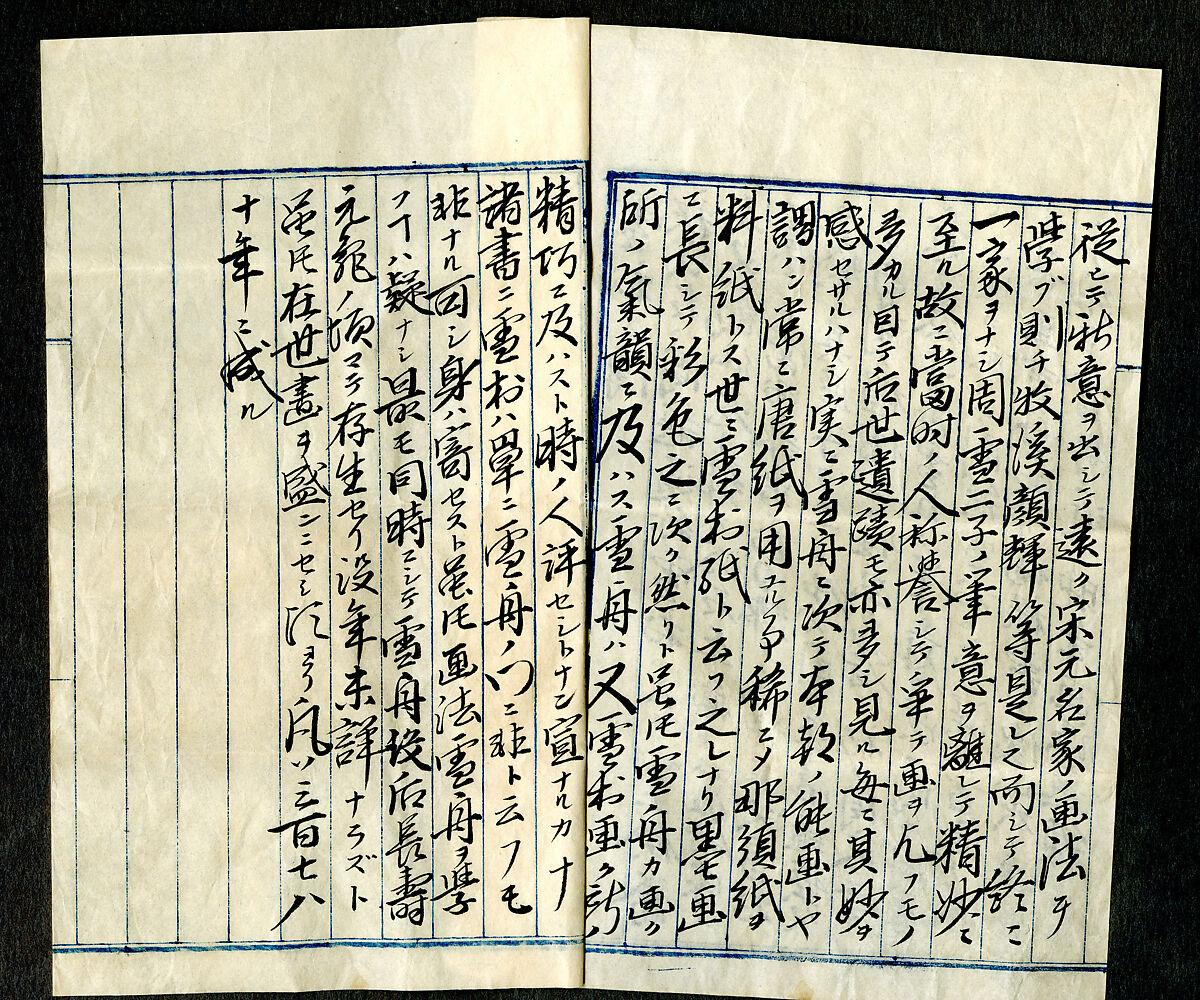 従ヒテ新意ヲ出シテ遠ク宋元名家ノ画法ヲ
學ブ則チ牧溪顔輝等是レ之而シテ終ニ
一家ヲナシ周雪二子ノ筆意ヲ離レテ精妙ニ
至ル故ニ當時ノ人称誉シテ挙テ画ヲ凡フモノ
多カル目テ后世遺蹟モ亦多シ見ル毎ニ其妙ヲ
感セサルハナシ実ニ雪舟ニ次テ本朝ノ能画トヤ
謂ハン常ニ唐紙ヲ用ユルヿ稀ニメ那須紙ヲ
料紙トス世ニ雪村紙ト云フ之レナリ墨画
ニ長シテ彩色之ニ次ク然リト虽𪜈雪舟カ画ク
所ノ氣韻ニ及ハス雪舟ハ又雪村画ク所ノ
精巧ニ及ハスト時ノ人評セシトナン宣ナルカナ
諸書ニ雪村ハ單ニ雪舟ノ門ニ非ト云フモ
非ナル可シ身ハ寄セスト虽𪜈画法雪舟ヲ學
フヿハ疑ナシ最モ同時ニシテ雪舟没后長壽
元亀ノ頃マテ存生セリ没年未詳ナラズト
虽𪜈在世畫ヲ盛ンニセシヨリ凡ソ三百七八
十年ニ成ル